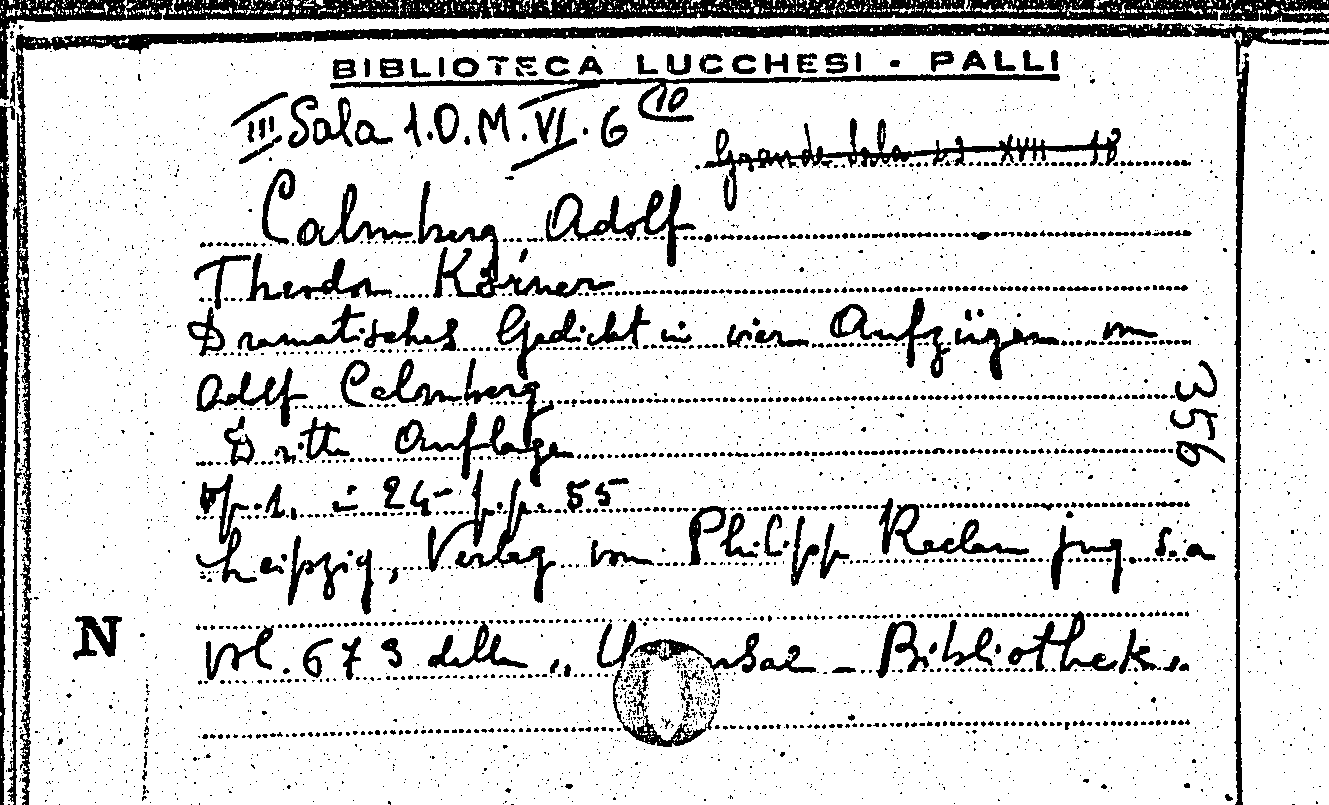 BIBLIOTECA LUCCHESI - PALLI
III Sala 1.O.M.VI.6 (10
Grande Sala 23 XVII 18
Calmberg Adolf
Theodor Körner
Dramatisches Gedicht in vier Aufzügen von
Adolf Calmberg
Dritte Auflage
Vol. 1. in 24- p.p. 55
Leipzig, Verlag von Philipp Reclam jung. s.a
356
N
vol. 673 della „ - Bibliothek „